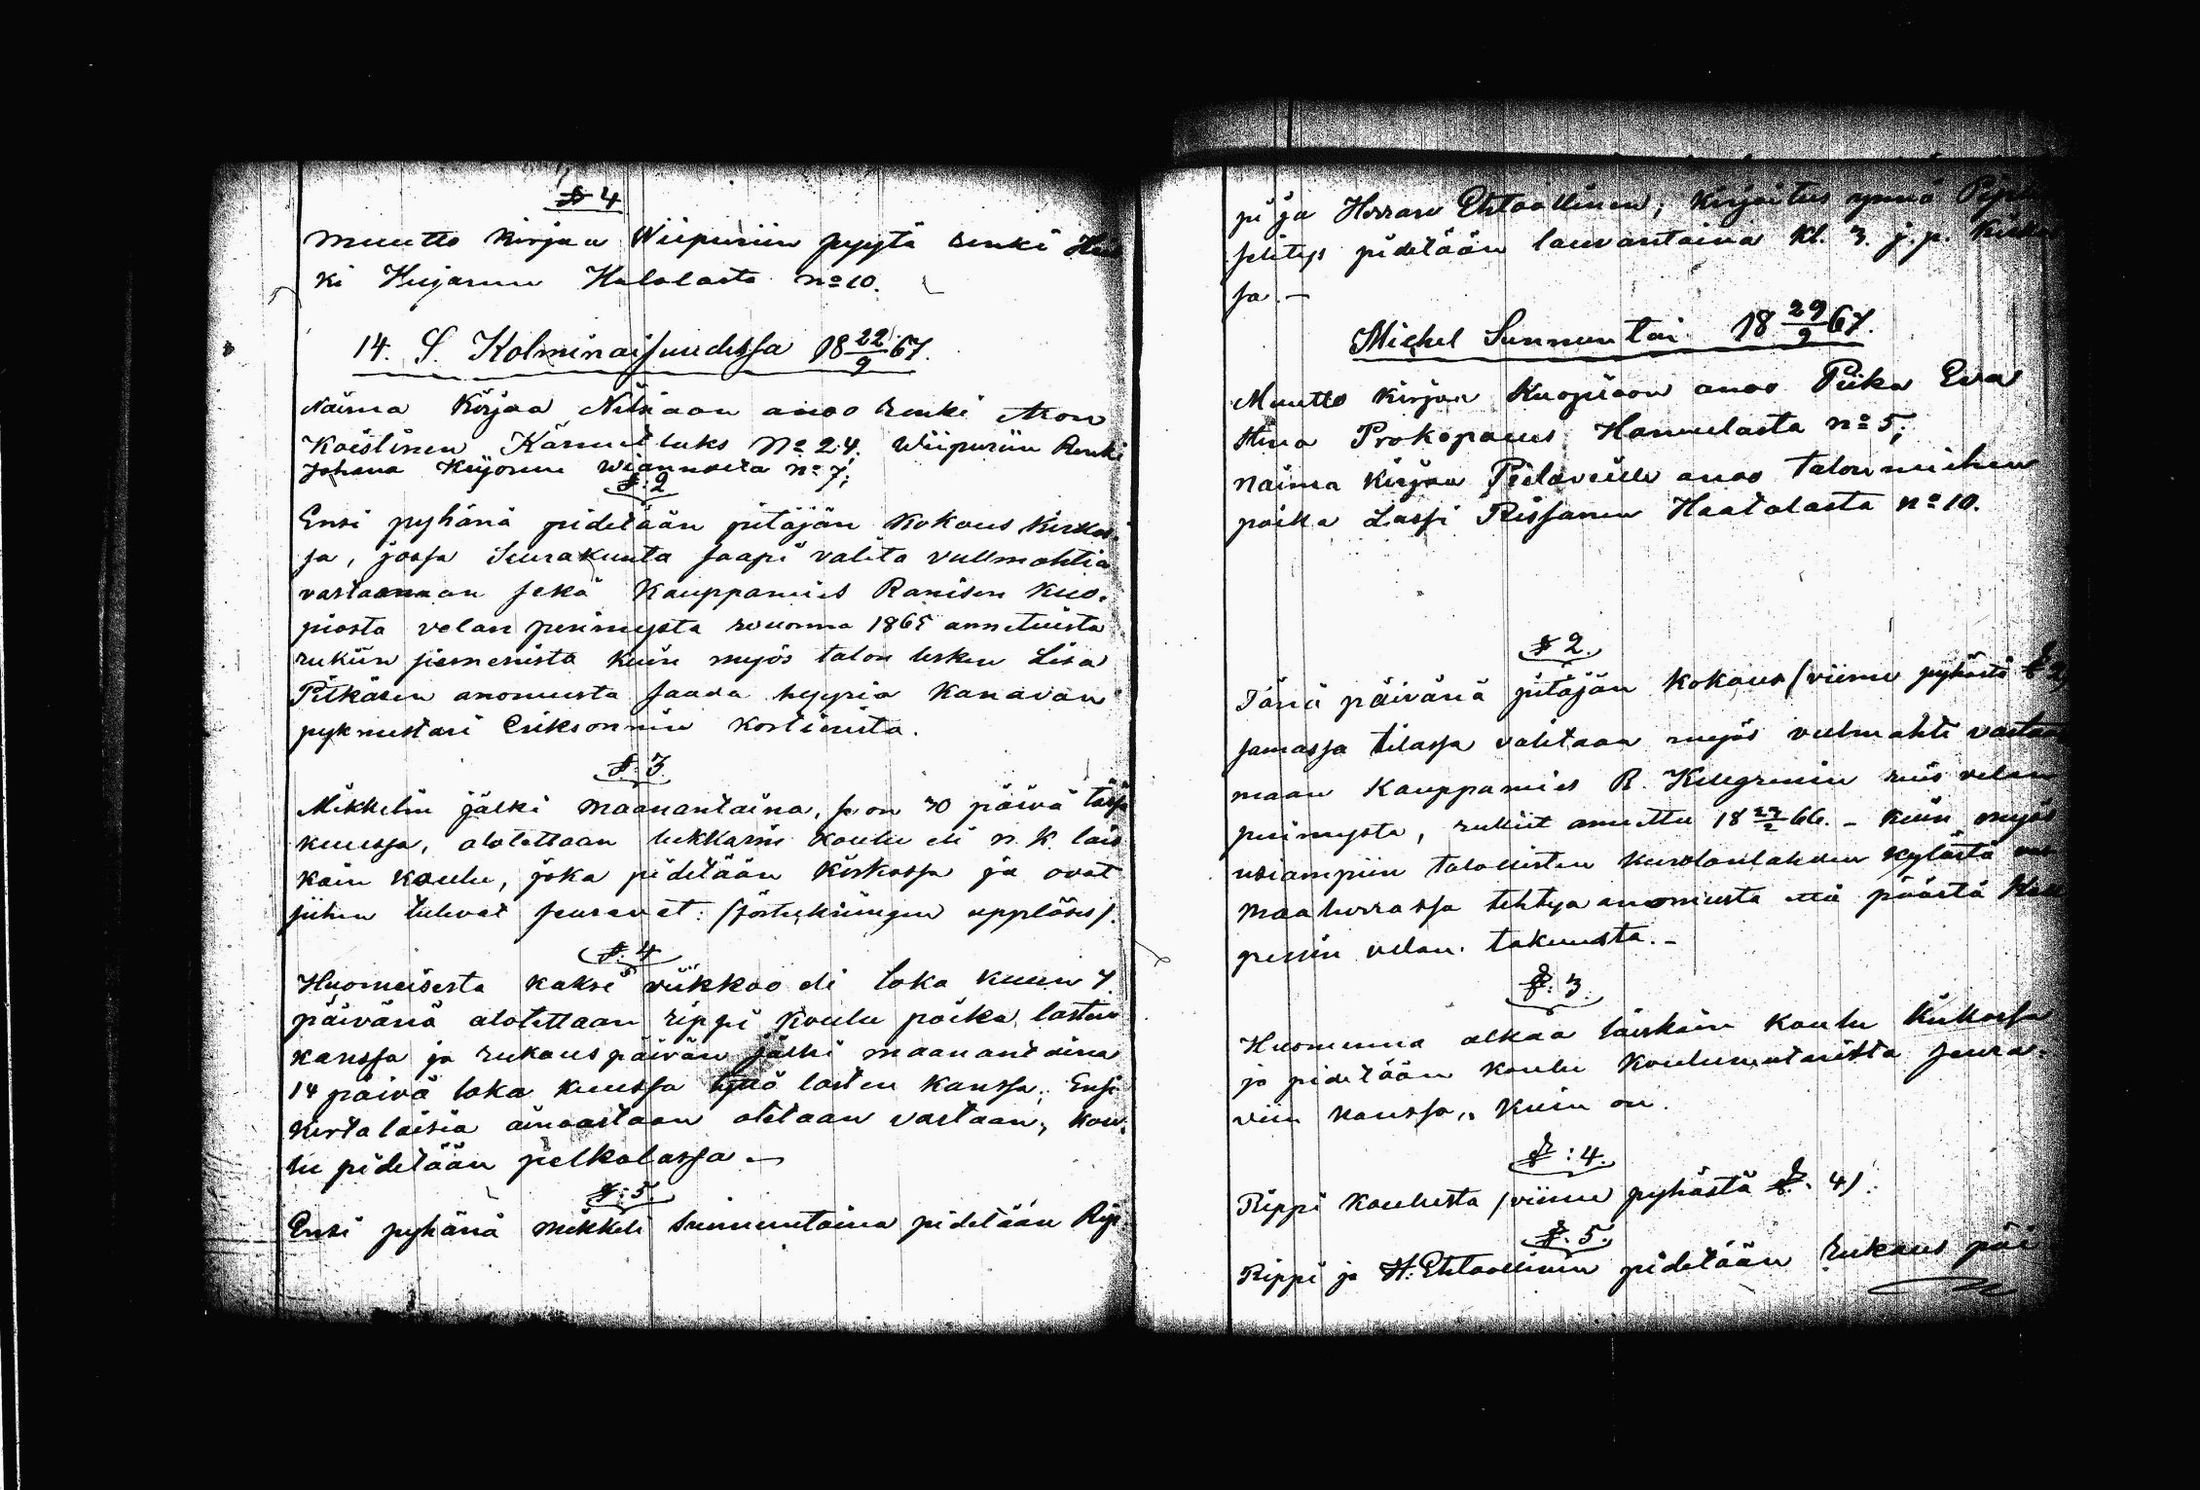 § 4
Muutto kirjaa Wiipuriin pyytä renki Hei
ki Kujanen Halolasta no 10.
14. S. Kolminaisuudessa 18 22/9 67.
Naima Kirjaa Nilsiaan anoo renki Aron
Koistinen No 24. Wiipuriin Renki
Johana no 7;
§: 2
Ensi pyhänä pidetään pitäjän Kokous kirkos
sa, jossa Seurakunta saapi valita vullmahtia
vastaamaan sekä Kauppamies Ranisen Kuo-
piosta velan perimystä vuonna 1865 annetuista
rukiin siemenistä kuin myös talon lesken Lisa
Pitkäsen anomusta saada hyyriä Kanavan
pykmestari Eriksonnin kortierista.
§: 3
Mikkelin jälki maanantaina, se on 30 päivä tässä
kuussa, alotettaan lukkarin koulu eli n. k. läis
käin koulu, joka pidetään kirkossa ja ovat
siihen tulevat seuravat: (förtekningen uppläses).
§: 4
Huomeisesta kaksi viikkoo eli loka kuun 7.
päivänä alotettaan rippi koulu poika lasten
kanssa ja rukouspäivän jälki maanantaina
14 päivä loka kuussa tyttö lasten kanssa; Ensi
kertalaisia ainoastaan otetaan vastaan; kou-
lu pidetään pelkolassa —
§: 5.
Ensi pyhänä Mikkeli Sunnuntaina pidetään Rip-
pi ja Herran Ehtoollinen; Kirjoitus ynnä Ripin
selitys pidetään lauvantaina Kl. 3. j.p. Kirkos
sa. —
Michel Sunnuntai 18 29/9 67.
Muutto kirjaa Kuopioon anoo Piika Eva
Stina Prokopaeus Hamulasta no 5;
naima kirjaa Pielaveille anoo talon miehen
poika Lassi Rissanen Haatalasta no 10.
§ 2.
Tänä päivänä pitäjän kokous (viime pyhästä § 2)
samassa tilassa valitaan myös vulmahti vastaa
maan Kauppamies R. velan
perimystä, rukiit annettu 18 66. — kuin myös
usiampiin talollisten kylästä
maaherrassa tehtyä anomusta että päästä
velan takuusta. —
§: 3.
Huomenna alkaa läiskäin koulu Kirkossa
ja pidetään koulu koulumestarista seura-
vien kanssa, kuin on.
§: 4.
Rippi koulusta (viime pyhästä §. 4).
§. 5.
Rippi ja H: Ehtoollinen pidetään rukous päi